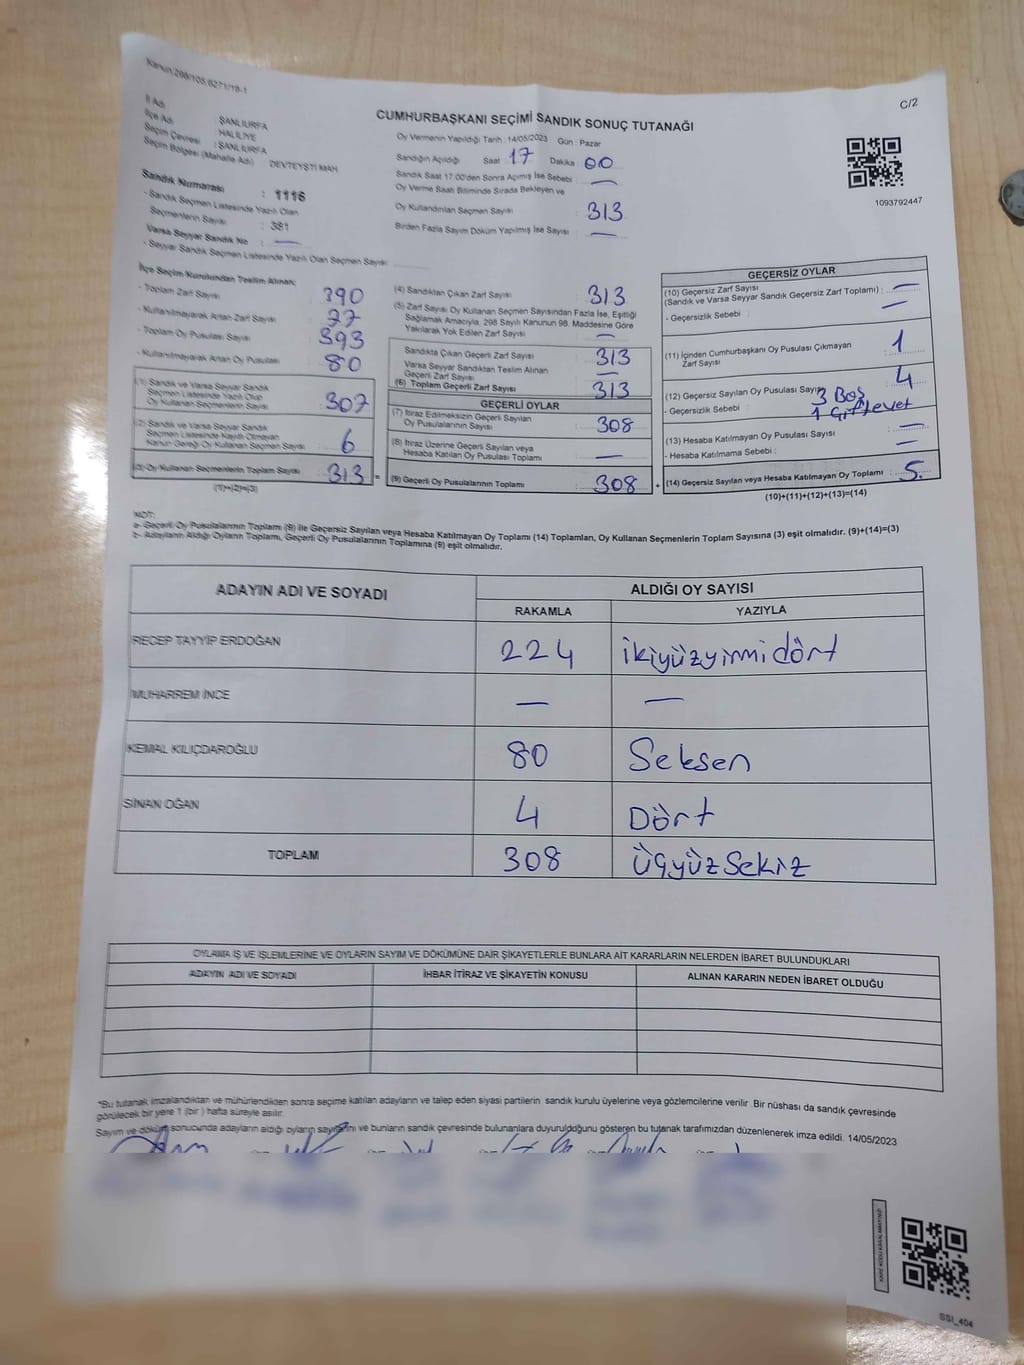 Kanun:298/105,6271/18-1
C/2
CUMHURBAŞKANI SEÇİMİ SANDIK SONUÇ TUTANAĞI
İl Adı : ŞANLIURFA
İlçe Adı : HALİLİYE
Seçim Çevresi : ŞANLIURFA
Seçim Bölgesi (Mahalle Adı) : DEVTEYŞTİ MAH
Sandık Numarası : 1116
- Sandık Seçmen Listesinde Yazılı Olan
Seçmenlerin Sayısı : 381
Varsa Seyyar Sandık No : —
- Seyyar Sandık Seçmen Listesinde Yazılı Olan Seçmen Sayısı:
Oy Vermenin Yapıldığı Tarih :14/05/2023 Gün : Pazar
Sandığın Açıldığı Saat 17 Dakika 00
Sandık Saat 17:00'den Sonra Açılmış İse Sebebi : —
Oy Verme Saati Bitiminde Sırada Bekleyen ve
Oy Kullandırılan Seçmen Sayısı : 313
Birden Fazla Sayım Döküm Yapılmış İse Sayısı : —
1093792447
İlçe Seçim Kurulundan Teslim Alınan;
- Toplam Zarf Sayısı : 390
- Kullanılmayarak Artan Zarf Sayısı : 77
- Toplam Oy Pusulası Sayısı : 393
- Kullanılmayarak Artan Oy Pusulası : 80
(1) Sandık ve Varsa Seyyar Sandık
Seçmen Listesinde Yazılı Olup
Oy Kullanan Seçmenlerin Sayısı : 307
(2) Sandık ve Varsa Seyyar Sandık
Seçmen Listesinde Kayıtlı Olmayan
Kanun Gereği Oy Kullanan Seçmen Sayısı : 6
(3) Oy Kullanan Seçmenlerin Toplam Sayısı : 313 =
(1)+(2)=(3)
(4) Sandıktan Çıkan Zarf Sayısı : 313
(5) Zarf Sayısı Oy Kullanan Seçmen Sayısından Fazla İse, Eşitliği
Sağlamak Amacıyla, 298 Sayılı Kanunun 98. Maddesine Göre
Yakılarak Yok Edilen Zarf Sayısı : —
Sandıkta Çıkan Geçerli Zarf Sayısı : 313
Varsa Seyyar Sandıktan Teslim Alınan
Geçerli Zarf Sayısı : —
(6) Toplam Geçerli Zarf Sayısı : 313
GEÇERLİ OYLAR
(7) İtiraz Edilmeksizin Geçerli Sayılan
Oy Pusulalarının Sayısı : 308
(8) İtiraz Üzerine Geçerli Sayılan veya
Hesaba Katılan Oy Pusulası Toplamı : —
(9) Geçerli Oy Pusulalarının Toplamı : 308 +
GEÇERSİZ OYLAR
(10) Geçersiz Zarf Sayısı
(Sandık ve Varsa Seyyar Sandık Geçersiz Zarf Toplamı) : —
- Geçersizlik Sebebi : —
(11) İçinden Cumhurbaşkanı Oy Pusulası Çıkmayan
Zarf Sayısı : 1
(12) Geçersiz Sayılan Oy Pusulası Sayısı : 4
- Geçersizlik Sebebi : 3 Boş
1 Çift evet
(13) Hesaba Katılmayan Oy Pusulası Sayısı : —
- Hesaba Katılmama Sebebi : —
(14) Geçersiz Sayılan veya Hesaba Katılmayan Oy Toplamı : 5
(10)+(11)+(12)+(13)=(14)
NOT:
a- Geçerli Oy Pusulalarının Toplamı (9) ile Geçersiz Sayılan veya Hesaba Katılmayan Oy Toplamı (14) Toplamları, Oy Kullanan Seçmenlerin Toplam Sayısına (3) eşit olmalıdır. (9)+(14)=(3)
b- Adayların Aldığı Oyların Toplamı, Geçerli Oy Pusulalarının Toplamına (9) eşit olmalıdır.
ADAYIN ADI VE SOYADI ALDIĞI OY SAYISI
RAKAMLA YAZIYLA
RECEP TAYYİP ERDOĞAN 224 ikiyüzyirmidört
MUHARREM İNCE — —
KEMAL KILIÇDAROĞLU 80 Seksen
SİNAN OĞAN 4 Dört
TOPLAM 308 Üçyüz Sekiz
OYLAMA İŞ VE İŞLEMLERİNE VE OYLARIN SAYIM VE DÖKÜMÜNE DAİR ŞİKAYETLERLE BUNLARA AİT KARARLARIN NELERDEN İBARET BULUNDUKLARI
ADAYIN ADI VE SOYADI İHBAR İTİRAZ VE ŞİKAYETİN KONUSU ALINAN KARARIN NEDEN İBARET OLDUĞU
*Bu tutanak imzalandıktan ve mühürlendikten sonra seçime katılan adayların ve talep eden siyasi partilerin sandık kurulu üyelerine veya gözlemcilerine verilir .Bir nüshası da sandık çevresinde
görülecek bir yere 1 (bir ) hafta süreyle asılır.
Sayım ve döküm sonucunda adayların aldığı oyların sayılarını ve bunların sandık çevresinde bulunanlara duyurulduğunu gösteren bu tutanak tarafımızdan düzenlenerek imza edildi. 14/05/2023
SSI_404